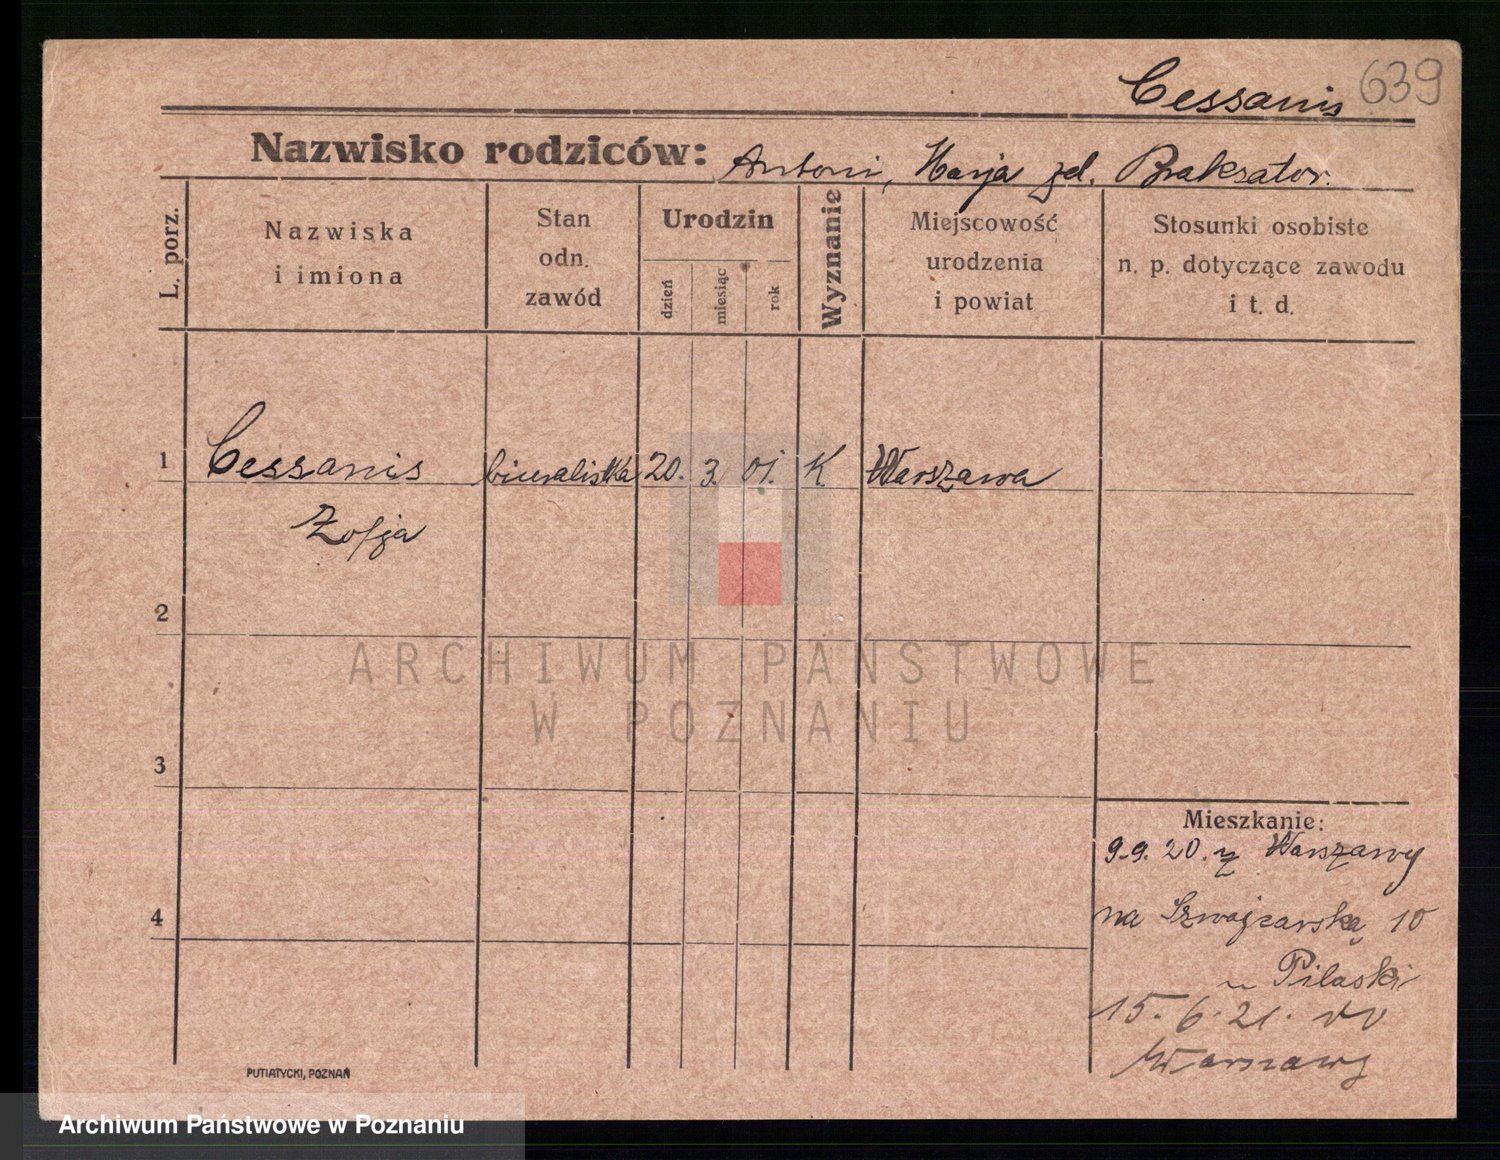 Cessanis 639
Nazwisko rodziców: Antoni, Marja zd. Braksator.
L. porz.
Nazwiska
i imiona
Stan
odn.
zawód
Urodzin
dzień
miesiąc
rok
Wyznanie
Miejscowość
urodzenia
i powiat
Stosunki osobiste
n. p. dotyczące zawodu
i t. d.
1 Cessanis biuralistka 20. 3. 01. K Warszawa
Zofja
2
3
4
Mieszkanie:
9.9.20. z Warszawy
na Szwajcarską 10
u Pilaski
15.6.21.
Warszawy
PUTIATYCKI, POZNAŃ
ARCHIWUM PAŃSTWOWE
W POZNANIU
Archiwum Państwowe w Poznaniu